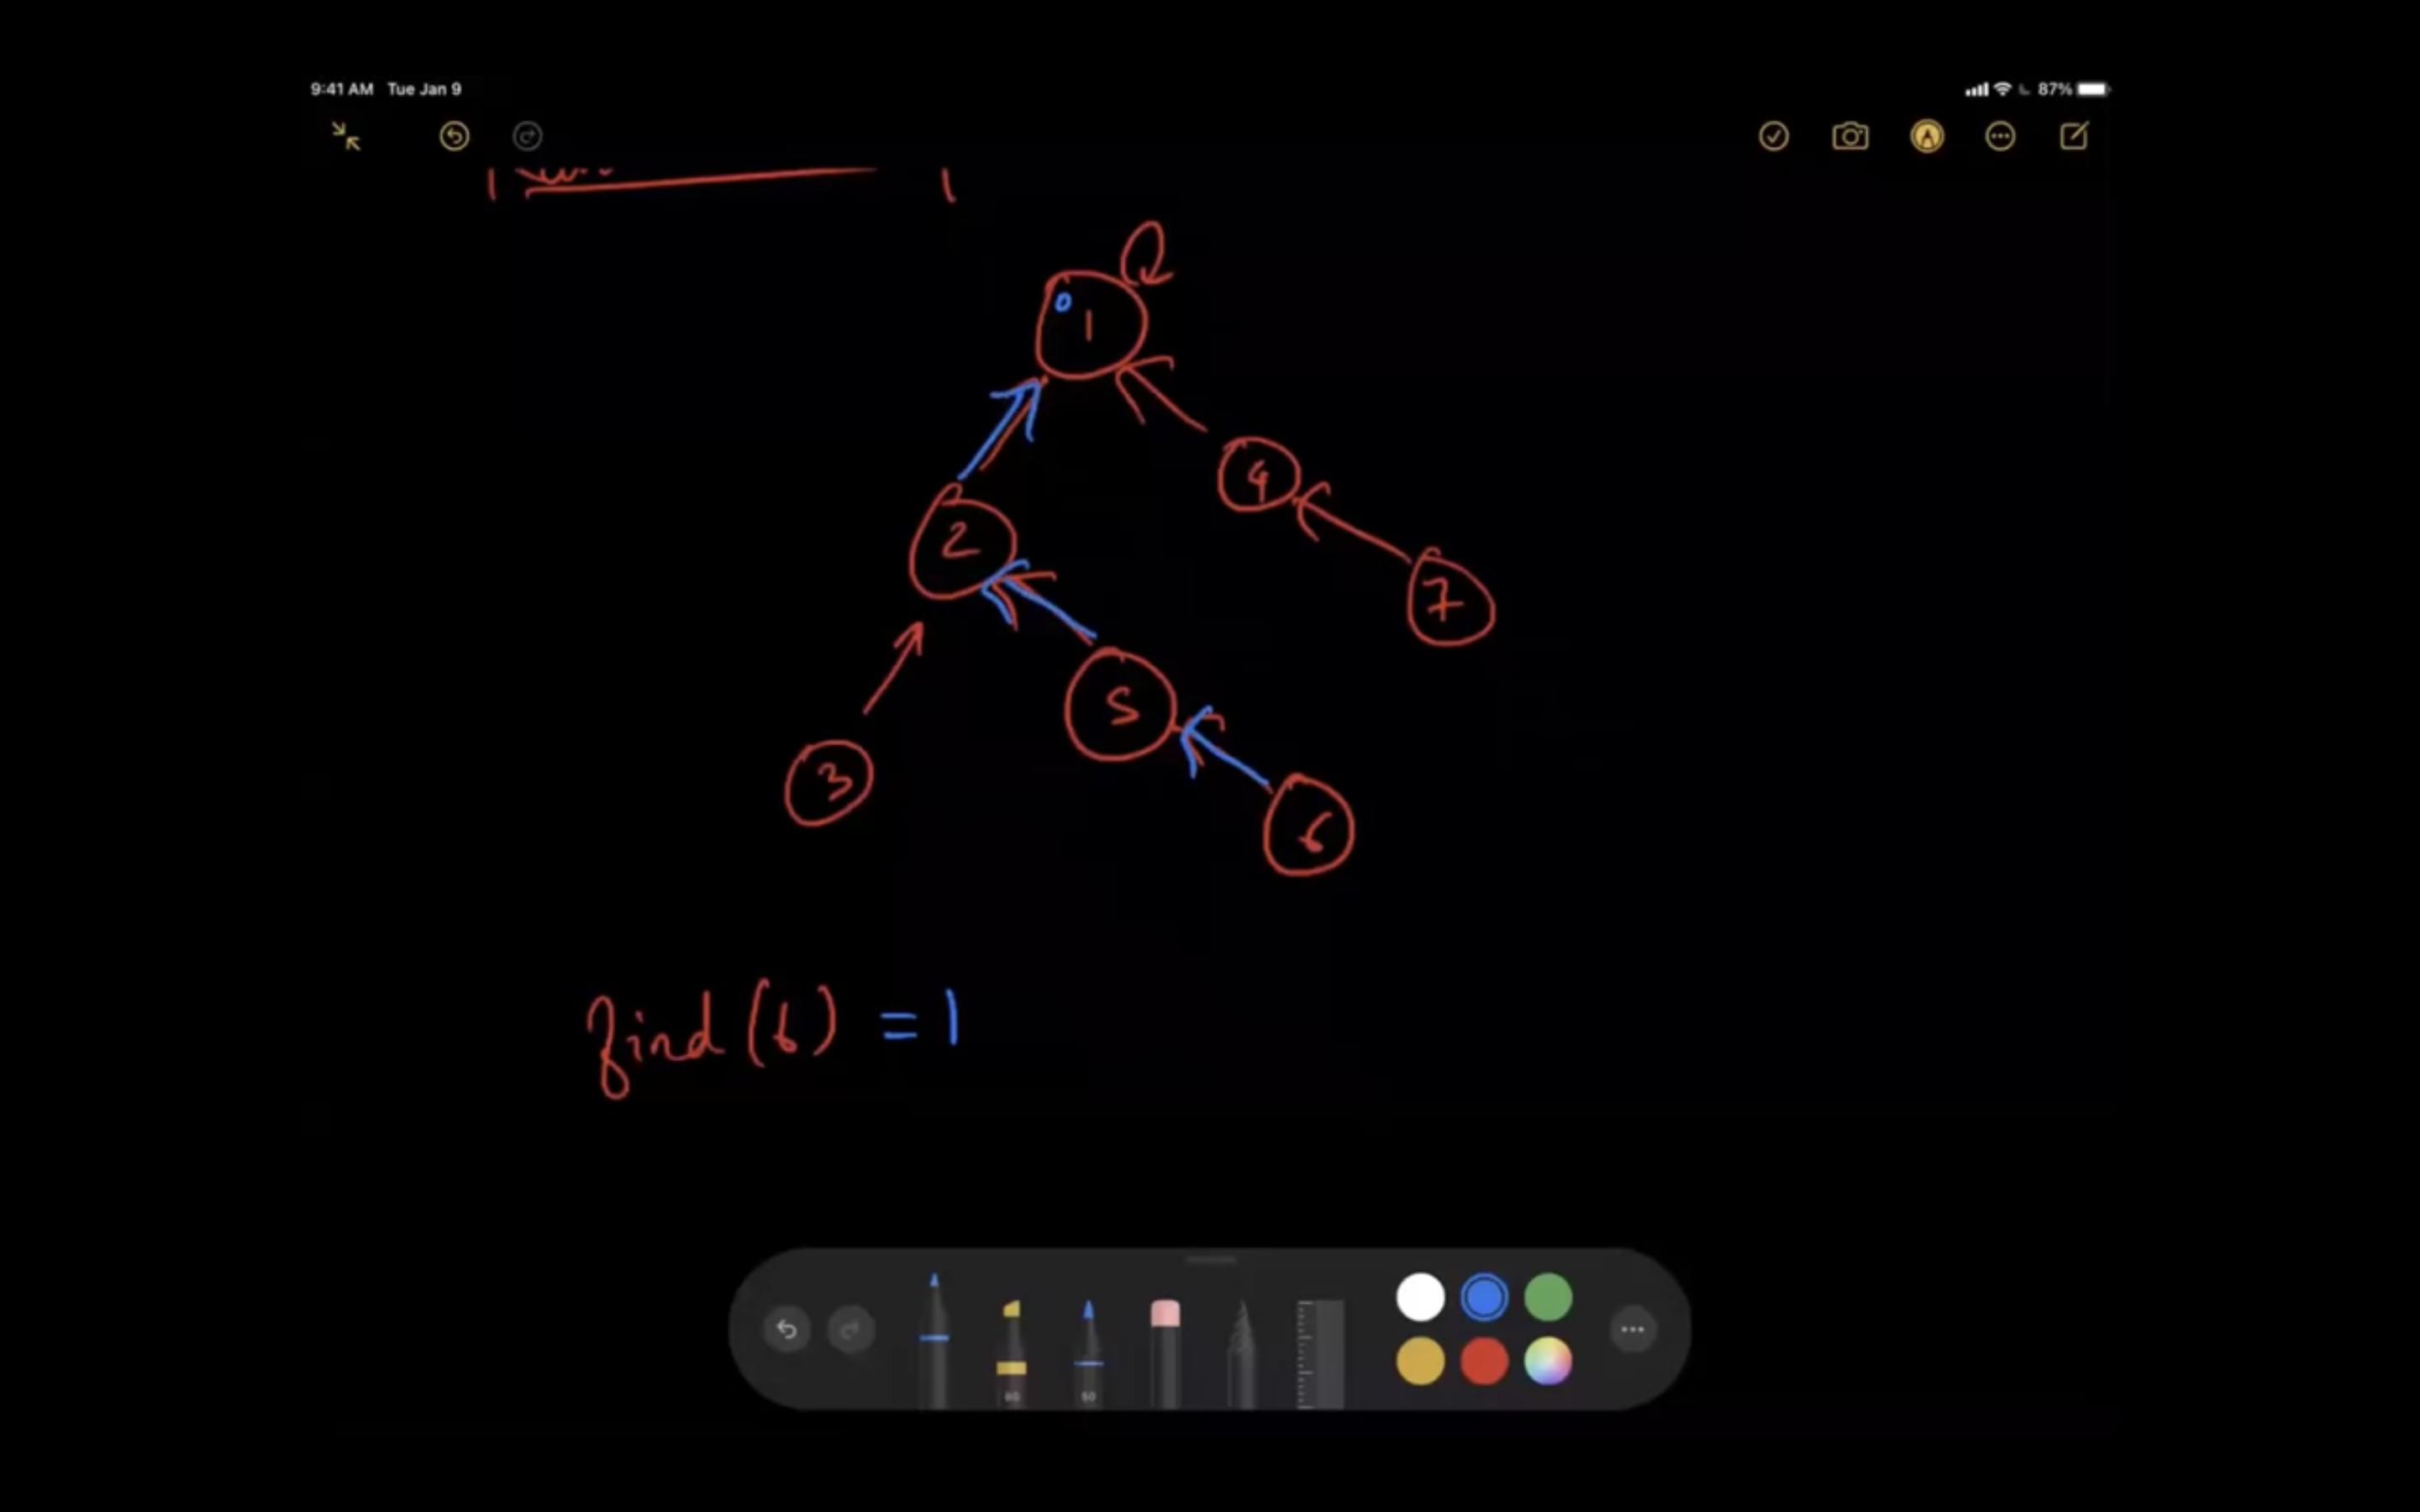 9:41 AM Tue Jan 9
87%
0
1
4
2
7
5
3
6
find(6) = 1
80
50